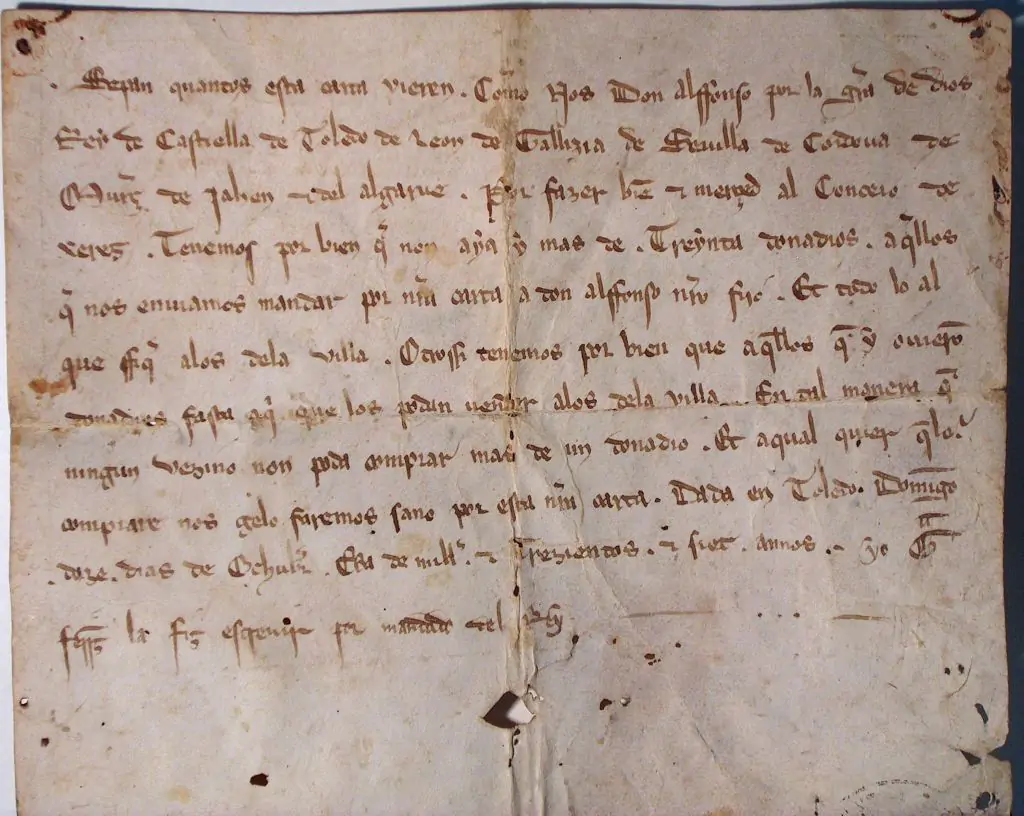 . Sepan quantos esta carta vieren . Como Nos Don Alffonso por la gra de dios
Rey de Castiella de Toledo de Leon de Gallizia de Seuilla de Cordoua de
Murç de Jahen et del algarue . Por fazer bie et merçed al Conceio de
veres . Tenemos por bien q non aya y mas de . Treynta donadios . aqllos
q nos enuiamos mandar por nra carta a don alffonso nro fijo . Et todo lo al
que ffiq alos dela villa . Otrossi tenemos por bien que aqllos q y ouiero
donadios fasta aqi que los podan vender alos dela villa . En tal manera q
ningun vezino non poda comprar mas de un donadio . Et aqual quier qlo
comprare nos gelo faremos sano por esta nra carta . Dada en Toledo . Domigo
. doze . dias de Ochubr . Era de mill . et Trezientos . et siet . annos . yo
ferrz la fiz escreuir por mandado del Rey